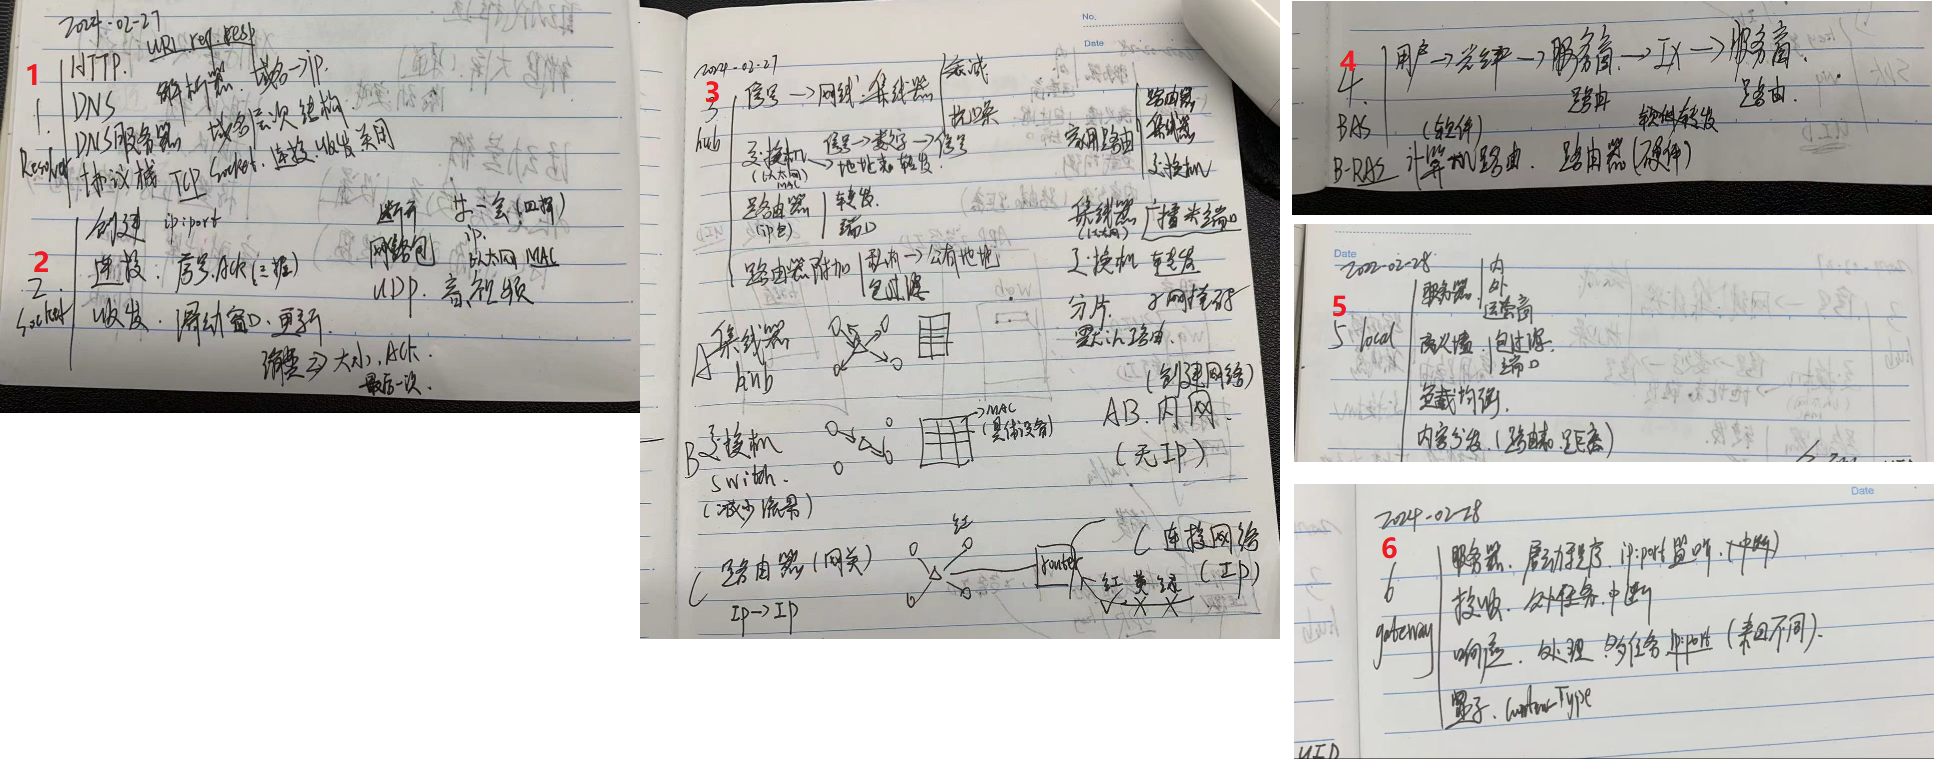 2024-02-27
1
HTTP. URL req resp
1. DNS 解析器. 域名→ip.
DNS服务器 域名层次结构.
Resolver 协议栈 TCP Socket. 连接. 收发 关闭
2
创建 ip:port 断开 (四挥)
2. 连接. 序号. Ack (三握) 网络包 ip. 以太网 MAC
Socket 收发. 滑动窗口. 更新. UDP. 音视频
大小. Ack.
最后一次.
No.
Date
2024-02-27
3
3 信号→网线. 集线器 衰减
抗噪
hub 交换机 信号→数字→信号
(以太网) MAC 地址表 转发.
路由器 转发
(ip包) 端口
路由器附加 私有→公有地址
包过滤
家用路由 路由器
集线器
交换机
集线器 广播 端口
(以太网)
交换机 转发
分片. 子网掩码
默认路由.
A 集线器
hub
B 交换机
switch.
(减少流量)
→MAC
(具体设备)
(创建网络)
AB. 内网.
(无IP)
C 路由器 (网关)
IP→IP
红
router
C 连接网络
(IP)
红 黄 绿
4
4. 用户→光纤→服务商→IX→服务商.
路由 路由.
BAS (软件) 软件转发
B-RAS 计算机路由. 路由器(硬件)
Date
2022-02-28
5
5 local 服务器 内
外
运营商
防火墙 包过滤.
端口
负载均衡.
内容分发. (路由表. 距离)
Date
2024-02-28
6
6 服务器. 启动程序. ip:port 监听. (中断)
接收. 中断
gateway 响应. 处理. 多任务 ip:port (来回不同).
Content-Type